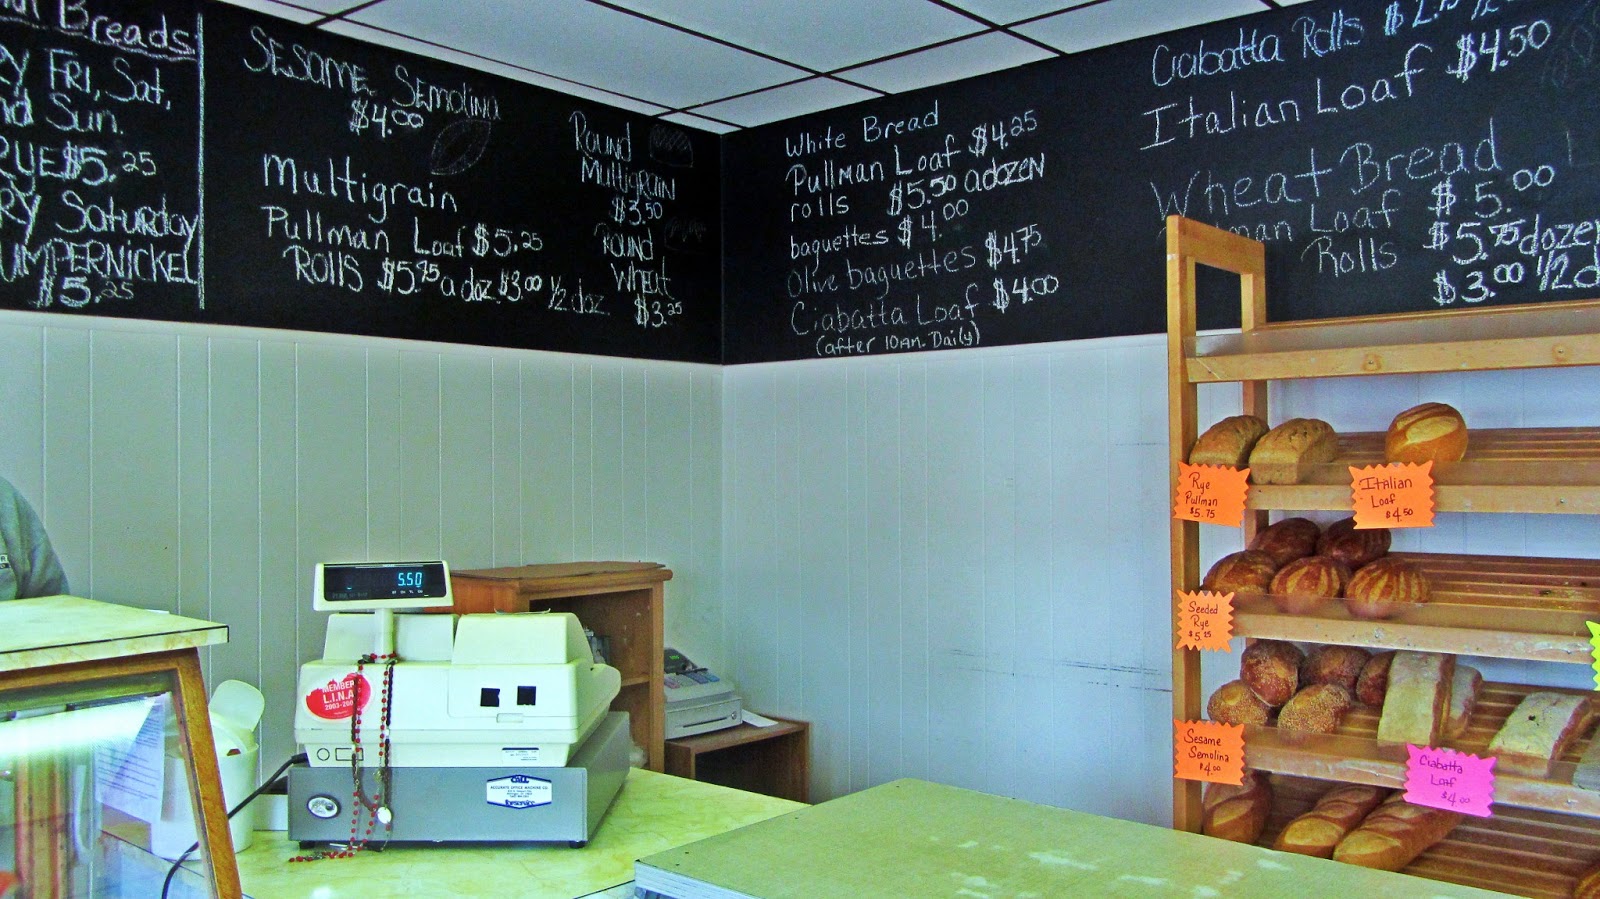 Breads
FRI, Sat,
nd Sun.
RYE $5.25
RY Saturday
UMPERNICKEL
$5.25
SESAME SEmolina
$4.00
multigrain
Pullman Loaf $5.25
ROLLS $5.75 a doz. $3.00 1/2 doz.
ROUND
MultigRAIN
$3.50
ROUND
WHEAT
$3.25
White Bread
Pullman Loaf $4.25
rolls $5.50 a dozen
baguettes $4.00
Olive baguettes $4.75
Ciabatta Loaf $4.00
(after 10am. Daily)
Ciabatta Rolls
Italian Loaf $4.50
Wheat Bread
man Loaf $5.00
Rolls $5.75 dozen
$3.00 1/2 d
Rye
Pullman
$5.75
Italian
Loaf
$4.50
Seeded
Rye
$5.25
Sesame
Semolina
$4.00
Ciabatta
Loaf
$4.00
5.50
MEMBER
L.I.N.A
CALL
ACCURATE OFFICE MACHINE CO.
for service